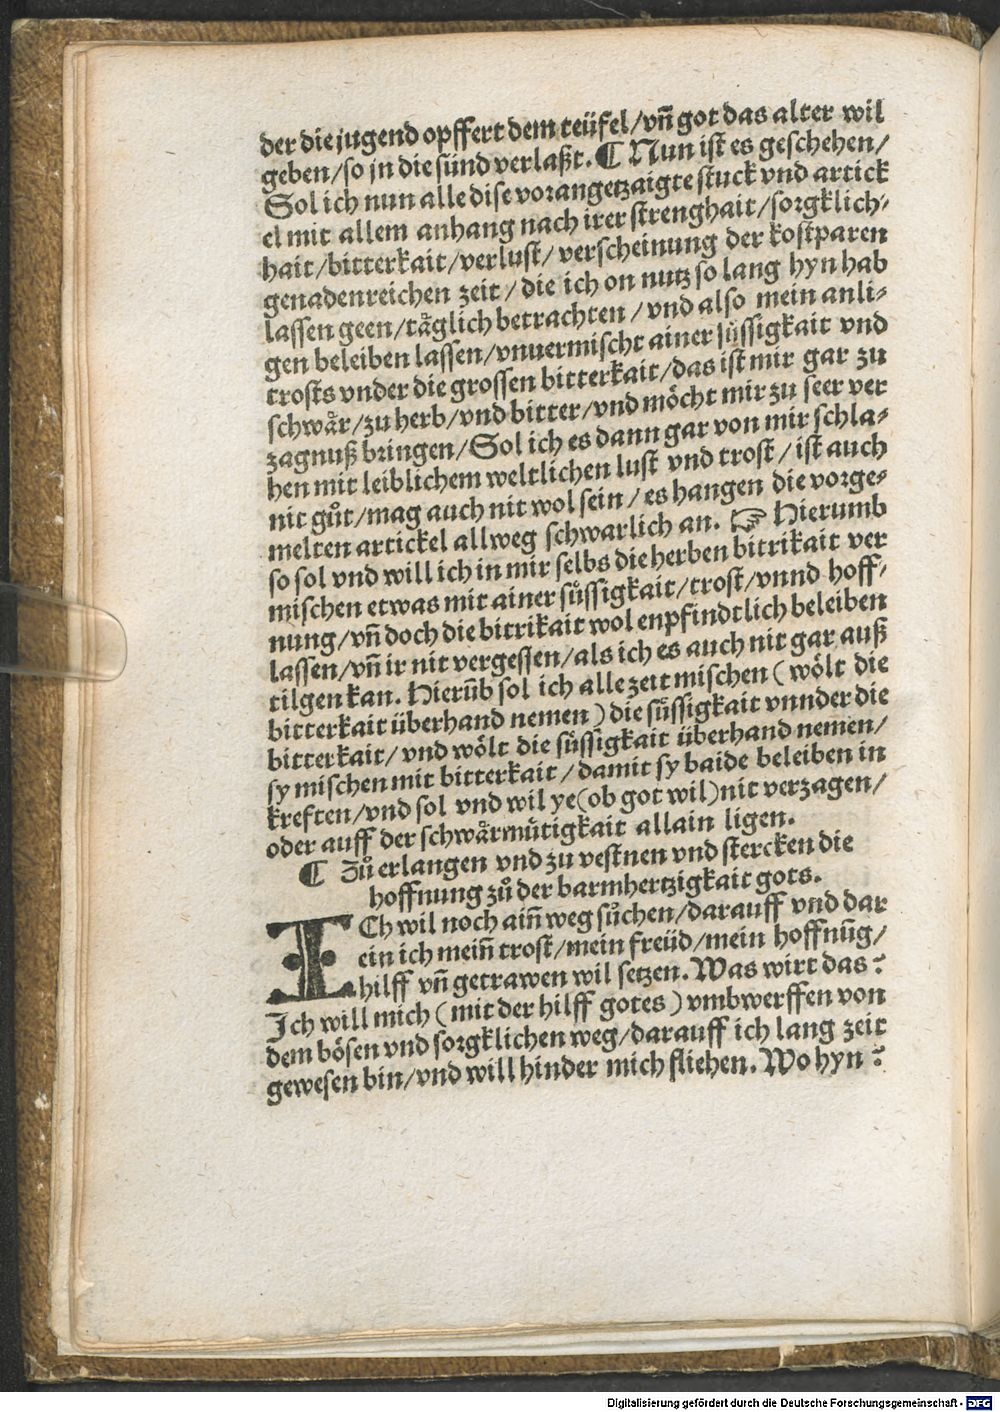 der die jugend opffert dem teüfel/vn̄ got das alter wil
geben/so jn die sünd verlaßt. ¶ Nun ist es geschehen/
Sol ich nun alle dise vorangetzaigte stuck vnd artick
el mit allem anhang nach irer strenghait/sorgklich⸗
hait/bitterkait/verlust/verscheinung der kostparen
genadenreichen zeit/die ich on nutz so lang hyn hab
lassen geen/tåglich betrachten/vnd also mein anli⸗
gen beleiben lassen/vnuermischt ainer sůssigkait vnd
trosts vnder die grossen bitterkait/das ist mir gar zu
schwår/zu herb/vnd bitter/vnd mo̊cht mir zu seer ver
zagnuß bringen/Sol ich es dann gar von mir schla⸗
hen mit leiblichem weltlichen lust vnd trost/ist auch
nit gůt/mag auch nit wol sein/es hangen die vorge⸗
melten artickel allweg schwarlich an. ☞ Hierumb
so sol vnd will ich in mir selbs die herben bitrikait ver
mischen etwas mit ainer sůssigkait/trost/vnnd hoff⸗
nung/vn̄ doch die bitrikait wol enpfindtlich beleiben
lassen/vn̄ ir nit vergessen/als ich es auch nit gar auß
tilgen kan. Hierūb sol ich alle zeit mischen (wo̊lt die
bitterkait überhand nemen) die sůssigkait vnnder die
bitterkait/vnd wo̊lt die sůssigkait überhand nemen/
sy mischen mit bitterkait/damit sy baide beleiben in
kreften/vnd sol vnd wil ye(ob got wil)nit verzagen/
oder auff der schwårmůtigkait allain ligen.
¶ Zů erlangen vnd zu vestnen vnd stercken die
hoffnung zů der barmhertzigkait gots.
ICh wil noch ain̄ weg sůchen/darauff vnd dar
ein ich mein̄ trost/mein freüd/mein hoffnūg/
hilff vn̄ getrawen wil setzen. Was wirt das?
Ich will mich (mit der hilff gotes) vmbwerffen von
dem bo̊sen vnd sorgklichen weg/darauff ich lang zeit
gewesen bin/vnd will hinder mich fliehen. Wo hyn?
Digitalisierung gefördert durch die Deutsche Forschungsgemeinschaft - DFG